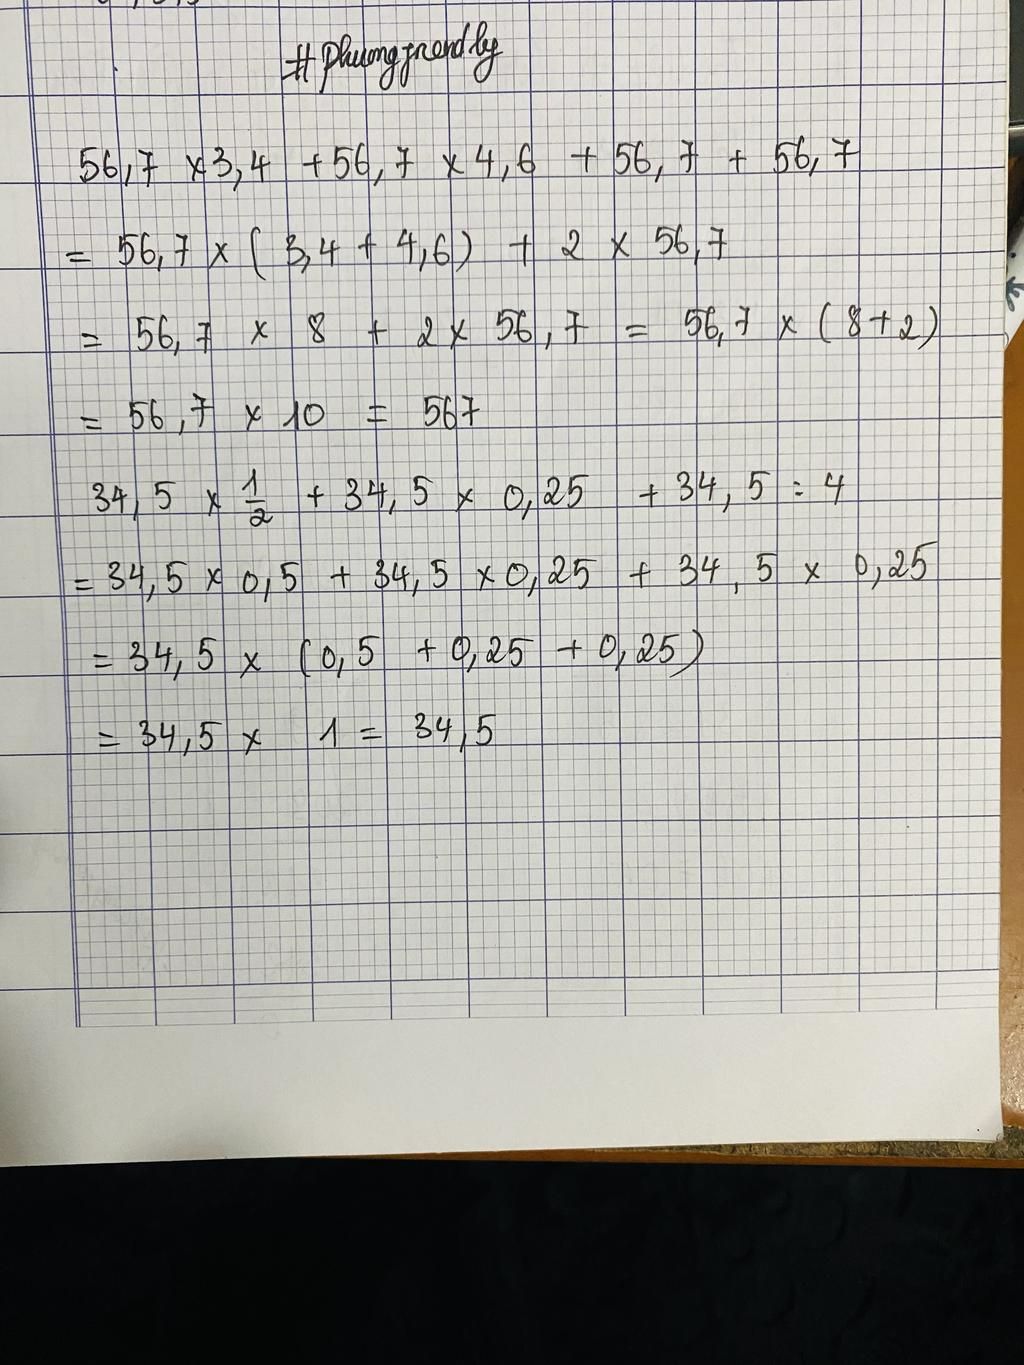 #Phuongfrendly
56,7 × 3,4 + 56,7 × 4,6 + 56,7 + 56,7
= 56,7 × ( 3,4 + 4,6 ) + 2 × 56,7
= 56,7 × 8 + 2 × 56,7 = 56,7 × ( 8 + 2 )
= 56,7 × 10 = 567
34,5 × 1/2 + 34,5 × 0,25 + 34,5 : 4
= 34,5 × 0,5 + 34,5 × 0,25 + 34,5 × 0,25
= 34,5 × (0,5 + 0,25 + 0,25)
= 34,5 × 1 = 34,5